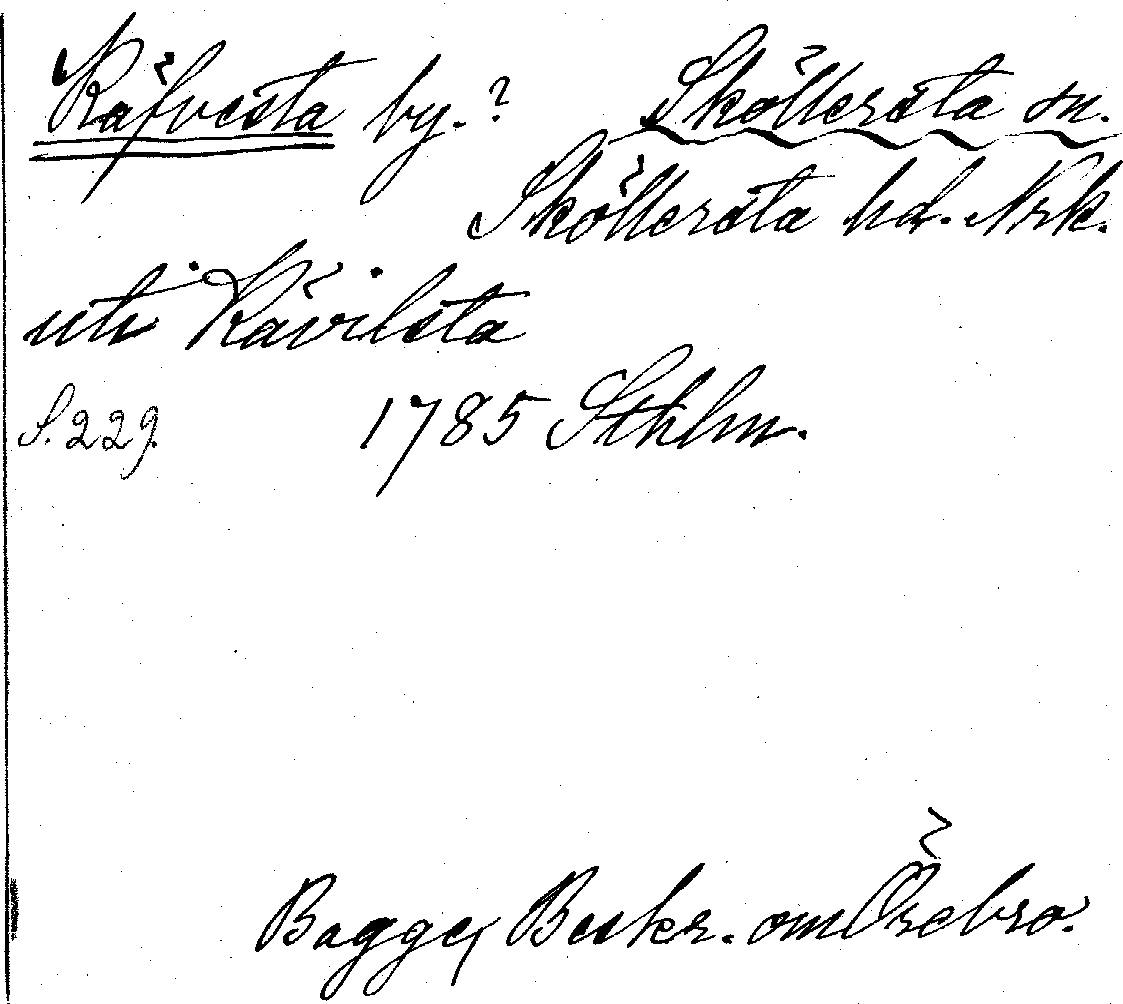 Räfvesta by.? Sköllersta sn.
Sköllersta hd. Nrk.
uti Rävilsta
S. 229. 1785 Sthlm.
Bagge, Beskr. om Örebro.